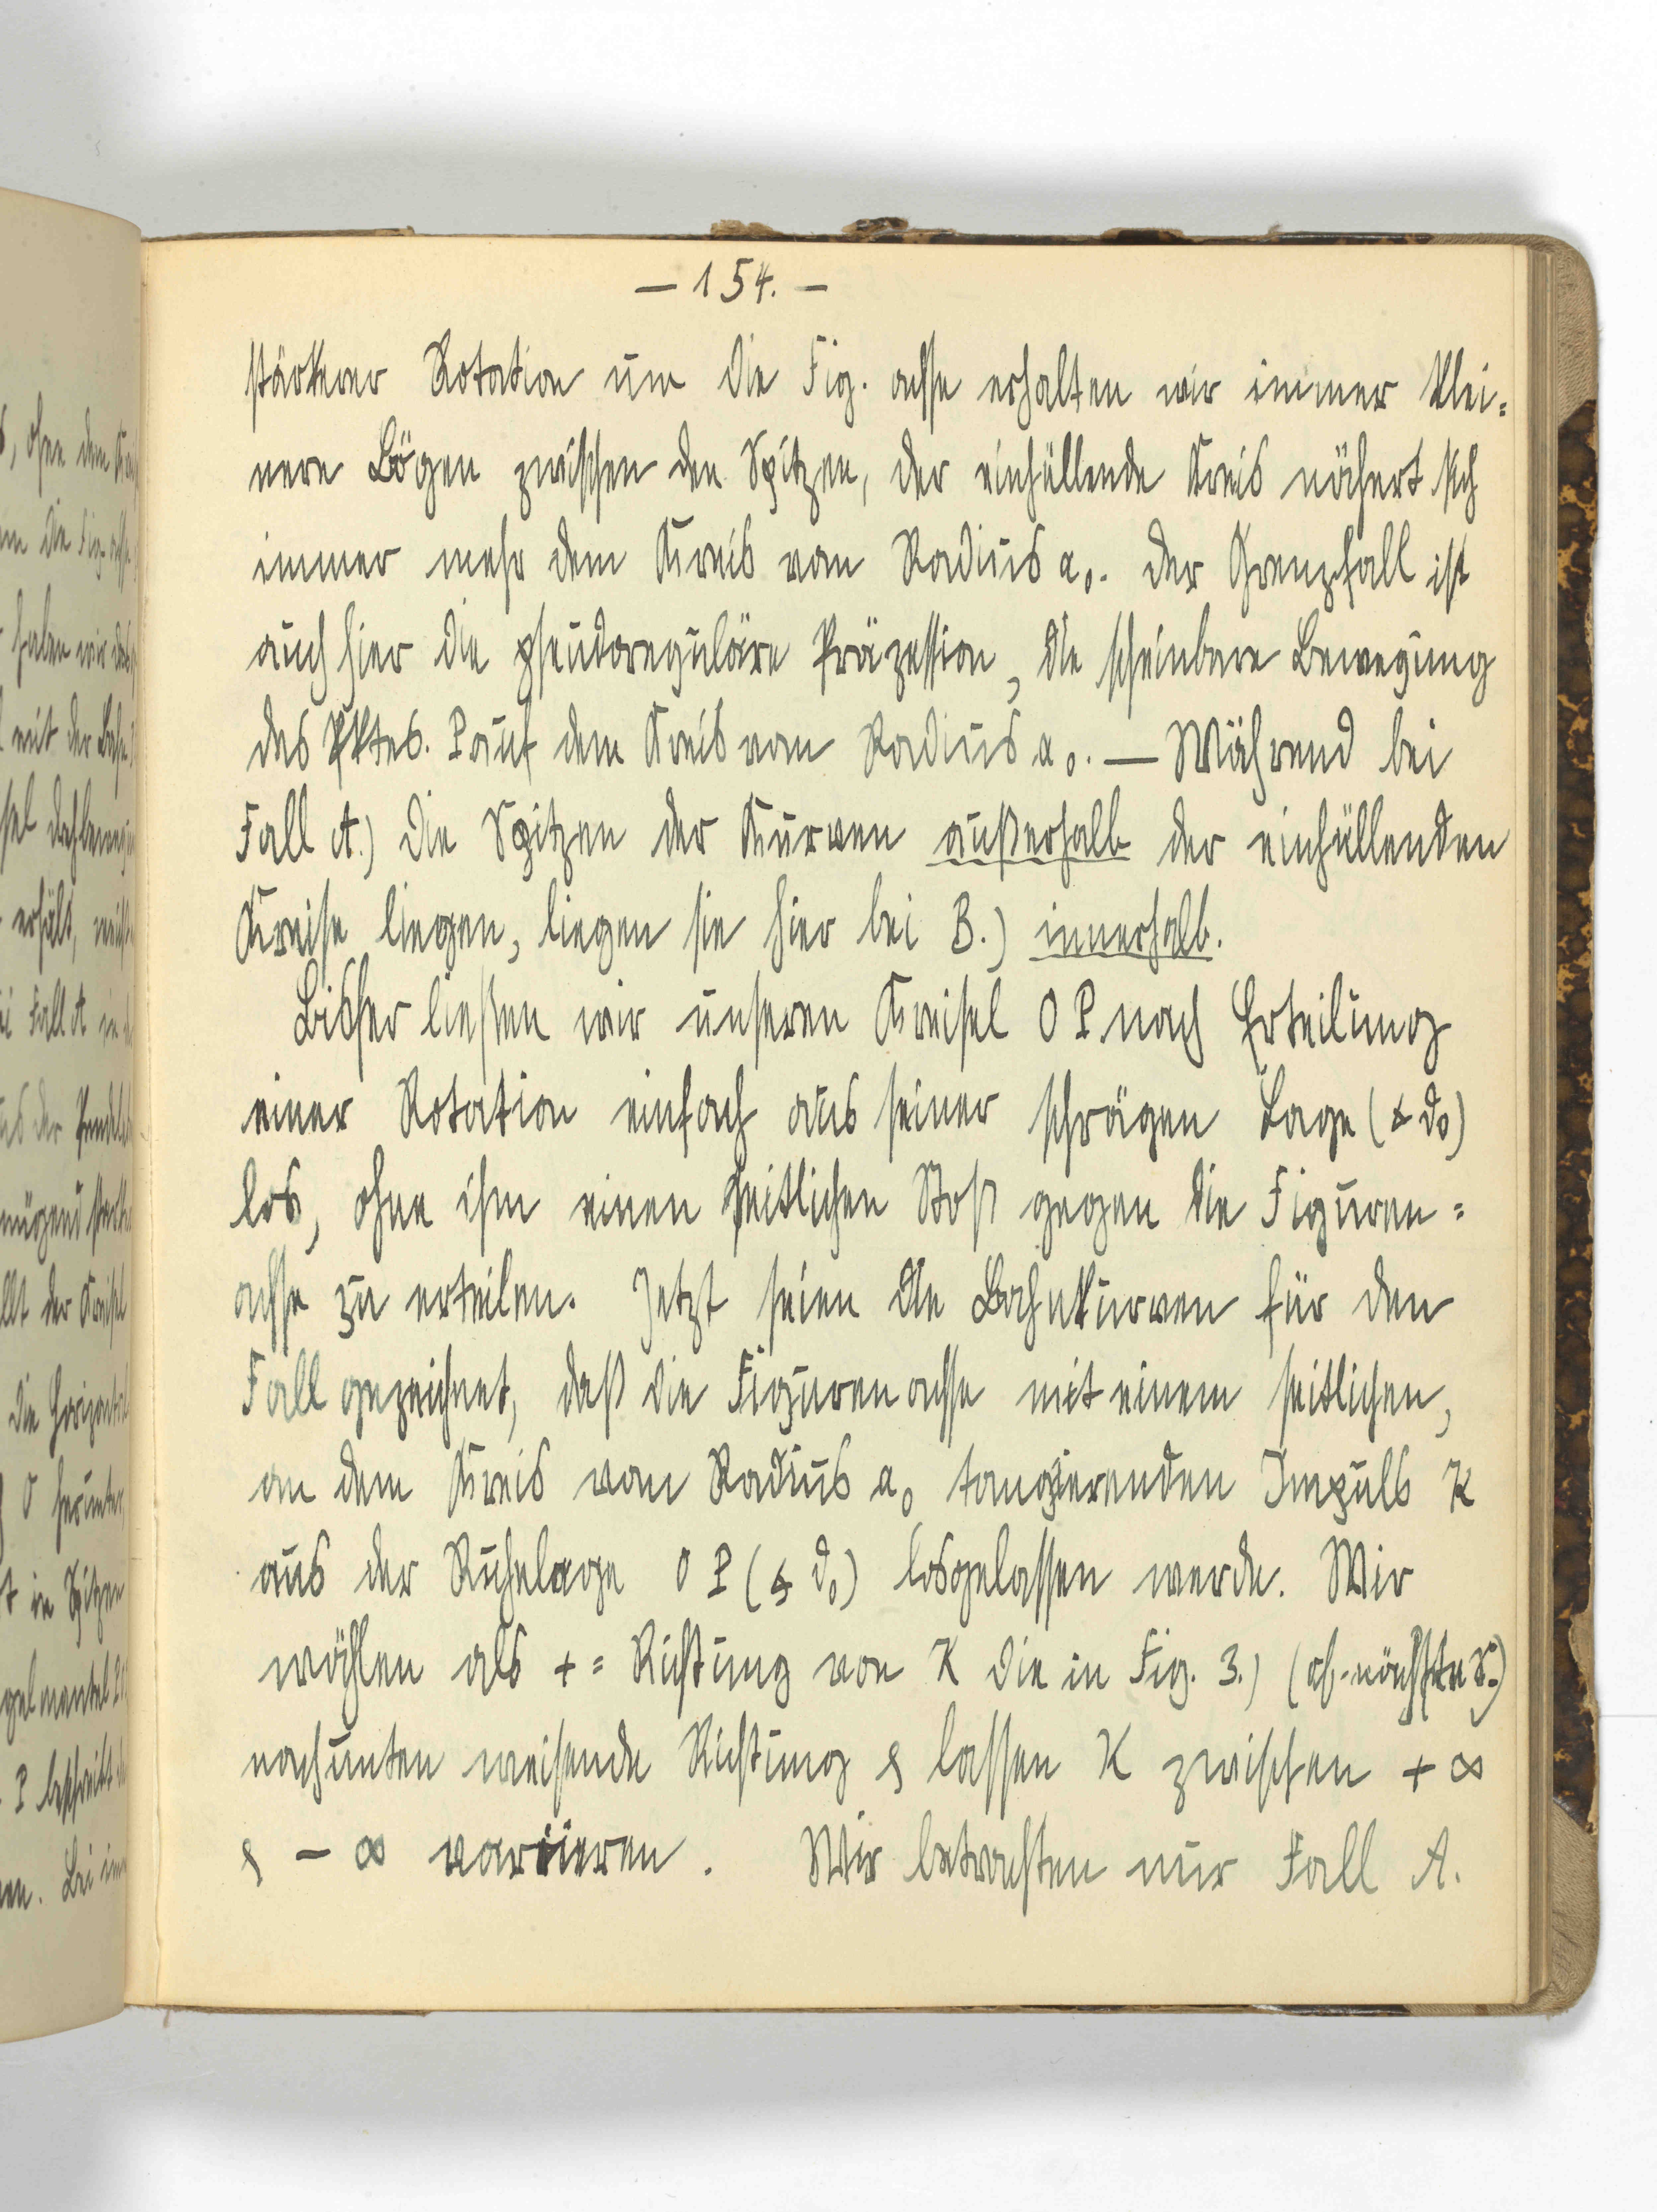 — 154. —
stärkerer Rotation um die Fig. achse erhalten wir immer klei=
nere Bögen zwischen den Spitzen, der einhüllende Kreis nähert sich
immer mehr dem Kreis vom Radius a₀. Der Grenzfall ist
auch hier die pseudoreguläre Präzession, die scheinbare Bewegung
des Pktes. P auf dem Kreis vom Radius a₀. — Während bei
Fall A.) die Spitzen der Kurven außerhalb der einhüllenden
Kreise liegen, liegen sie hier bei B.) innerhalb.
Bisher ließen wir unseren Kreisel O P nach Erteilung
einer Rotation einfach aus seiner schrägen Lage (∢ ϑ₀)
los, ohne ihm einen seitlichen Stoß gegen die Figuren=
achse zu erteilen. Jetzt seien die Bahnkurven für den
Fall gezeichnet, daß die Figurenachse mit einem seitlichen,
an dem Kreis vom Radius a₀ tangierenden Impuls K
aus der Ruhelage O P (∢ ϑ₀) losgelassen werde. Wir
wählen als + = Richtung von K die in Fig. 3.) (cf. nächste S.)
nach unten weisende Richtung & lassen K zwischen + ∞
& − ∞ variieren. Wir betrachten nur Fall A.
ohne dem
um die Fig. achse
haben wir das
mit der Bahn
erhält,
Fall A in
der Pendel
der Kreisel
Die Horizontal
O herunter
in Spitzen
P beschreibt
Bei